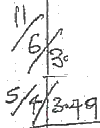 11/6/30
5/4/3-49